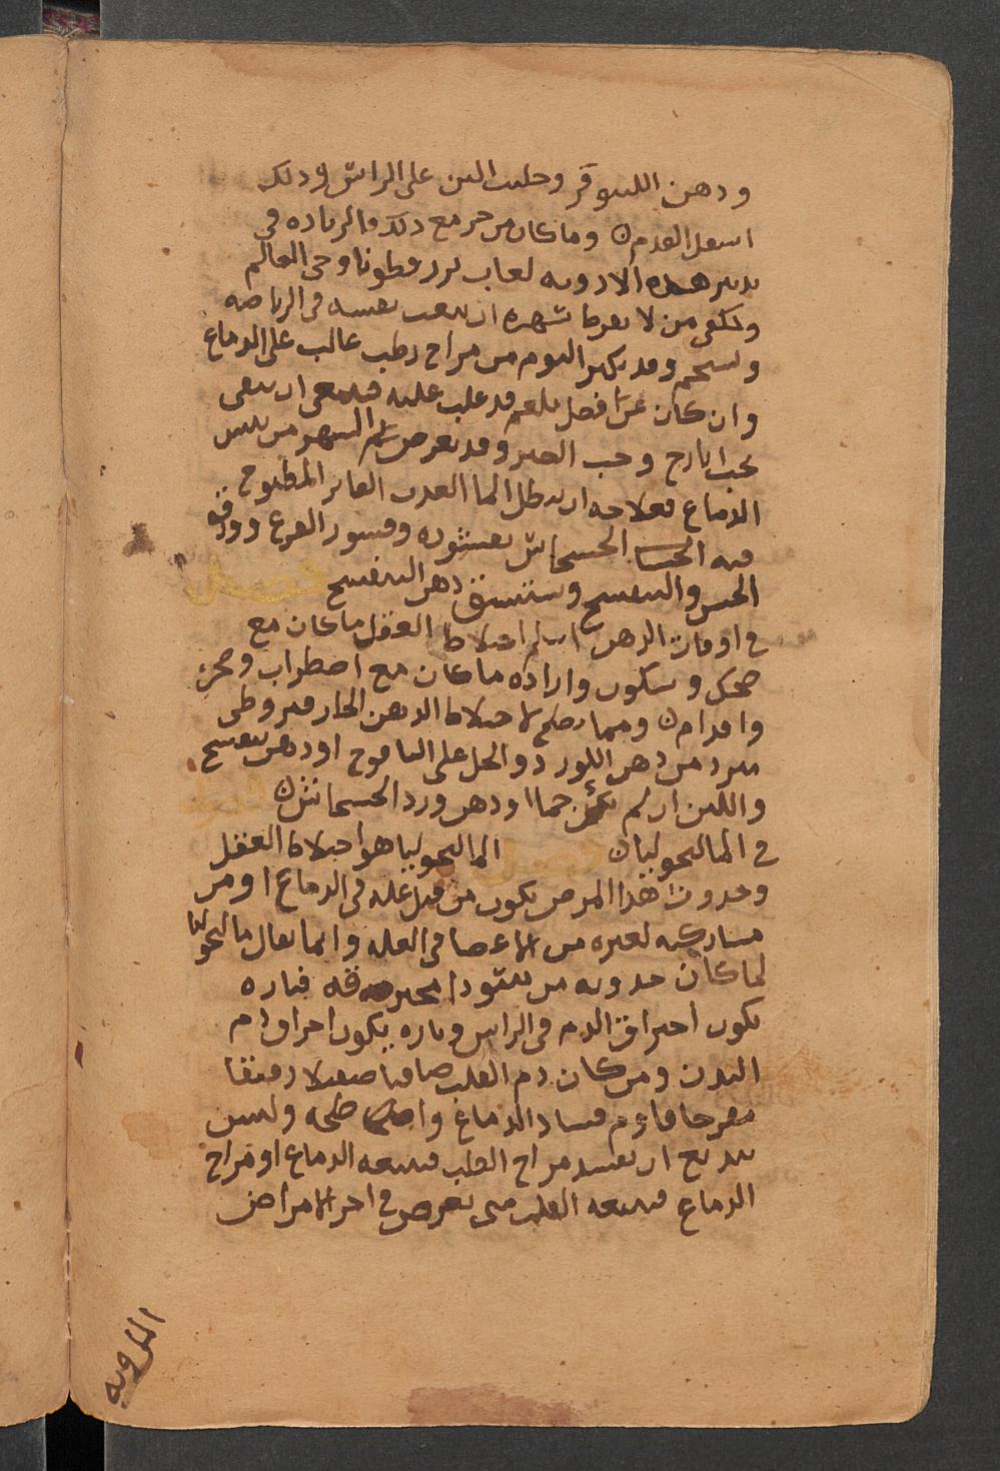 ودهن اللينوفر وحليب اللبن على الراس وذلك
اسفل القدم وما كان من حر مع ذلك فالزياده في
تدبير هذه الادويه لعاب بزر قطونا وحى العالم
ويكفى من لا يفرط سهره ان يتعب نفسه في الرياضه
ويستحم وقد يكثر النوم من مزاج رطب غالب على الدماغ
وان كان عن افضل بلغم قد غلب عليه فينبغى ان ينقى
بحب ايارج وحب الصبر وقد يعرض السهر من يبس
الدماغ فعلاجه ان ينطل الما العذب الفاتر المطبوخ
فيه الخشخاش بقشوره وقشور القرع وورق
الخس والبنفسج ويستنشق دهن البنفسج فصل
في اوقات الذهن اسلم اختلاط العقل ما كان مع
ضحك وسكون وارادٔه ما كان مع اضطراب وضجر
واقدام ومما يصلح لاختلاط الذهن الحار قيروطى
مبرد من دهن اللوز والخل على اليافوخ او دهن بنفسج
واللبن ان لم تكن حما او دهن ورد الخشخاش
في الماليخوليا فصل الماليخوليا هو اختلاط العقل
وحدوث هذا المرض يكون من قبل عله في الدماغ او من
مشاركته لغيره من الاعضا في العله وانما يقال ماليخوليا
لما كان حدوثه من سودا محترقه فتاره
يكون احتراق الدم في الراس وتاره يكون احراق دم
البدن ومن كان دم القلب صافيا صقيلا رقيقا
مفرحا قاوم فساد الدماغ واصلحه وليس
ببديع ان يفسد مزاج القلب فيتبعه الدماغ او مزاج
الدماغ فيتبعه القلب متى تعرض في اخر الامراض